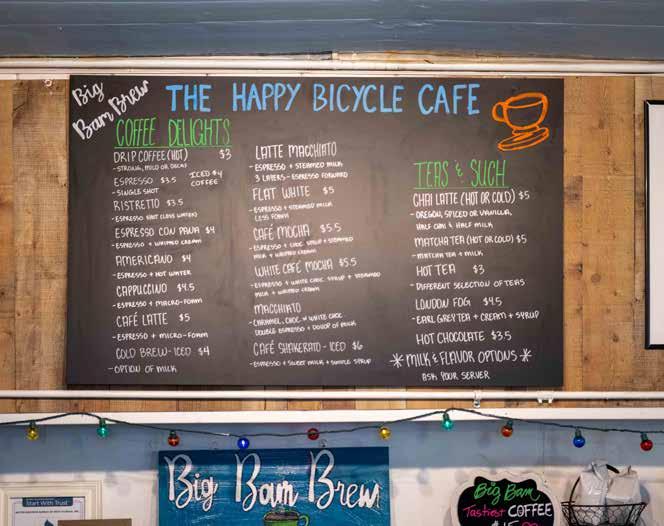 Big
Bam Brew
THE HAPPY BICYCLE CAFE
COFFEE DELIGHTS
DRIP COFFEE (HOT) $3
- STRONG, MILD OR DECAF
ICED $4
COFFEE
ESPRESSO $3.5
- SINGLE SHOT
RISTRETTO $3.5
- ESPRESSO SHOT (LESS WATER)
ESPRESSO CON PANA $4
- ESPRESSO + WHIPPED CREAM
AMERICANO $4
- ESPRESSO + HOT WATER
CAPPUCCINO $4.5
- ESPRESSO + MACRO-FOAM
CAFÉ LATTE $5
- ESPRESSO + MICRO-FOAM
COLD BREW-ICED $4
- OPTION OF MILK
LATTE MACCHIATO
- ESPRESSO + STEAMED MILK
3 LAYERS - ESPRESSO FORWARD
FLAT WHITE $5
- ESPRESSO + STEAMED MILK
LESS FOAM
CAFÉ MOCHA $5.5
- ESPRESSO + CHOC SYRUP + STEAMED
MILK + WHIPPED CREAM
WHITE CAFÉ MOCHA $5.5
- ESPRESSO + WHITE CHOC SYRUP + STEAMED
MILK + WHIPPED CREAM
MACCHIATO
- CARAMEL, CHOC OR WHITE CHOC
DOUBLE ESPRESSO + DOLLOP OF MILK
CAFÉ SHAKERATO - ICED $6
- ESPRESSO + SWEET MILK + SIMPLE SYRUP
TEAS & SUCH
CHAI LATTE (HOT OR COLD) $5
- OREGON, SPICED OR VANILLA,
HALF CHAI & HALF MILK
MATCHA TEA (HOT OR COLD) $5
- MATCHA TEA + MILK
HOT TEA $3
- DIFFERENT SELECTION OF TEAS
LONDON FOG $4.5
- EARL GREY TEA + CREAM + SYRUP
HOT CHOCOLATE $3.5
* MILK & FLAVOR OPTIONS *
ASK YOUR SERVER
Big Bam Brew
Start With Trust
Big Bam
Tastiest COFFEE